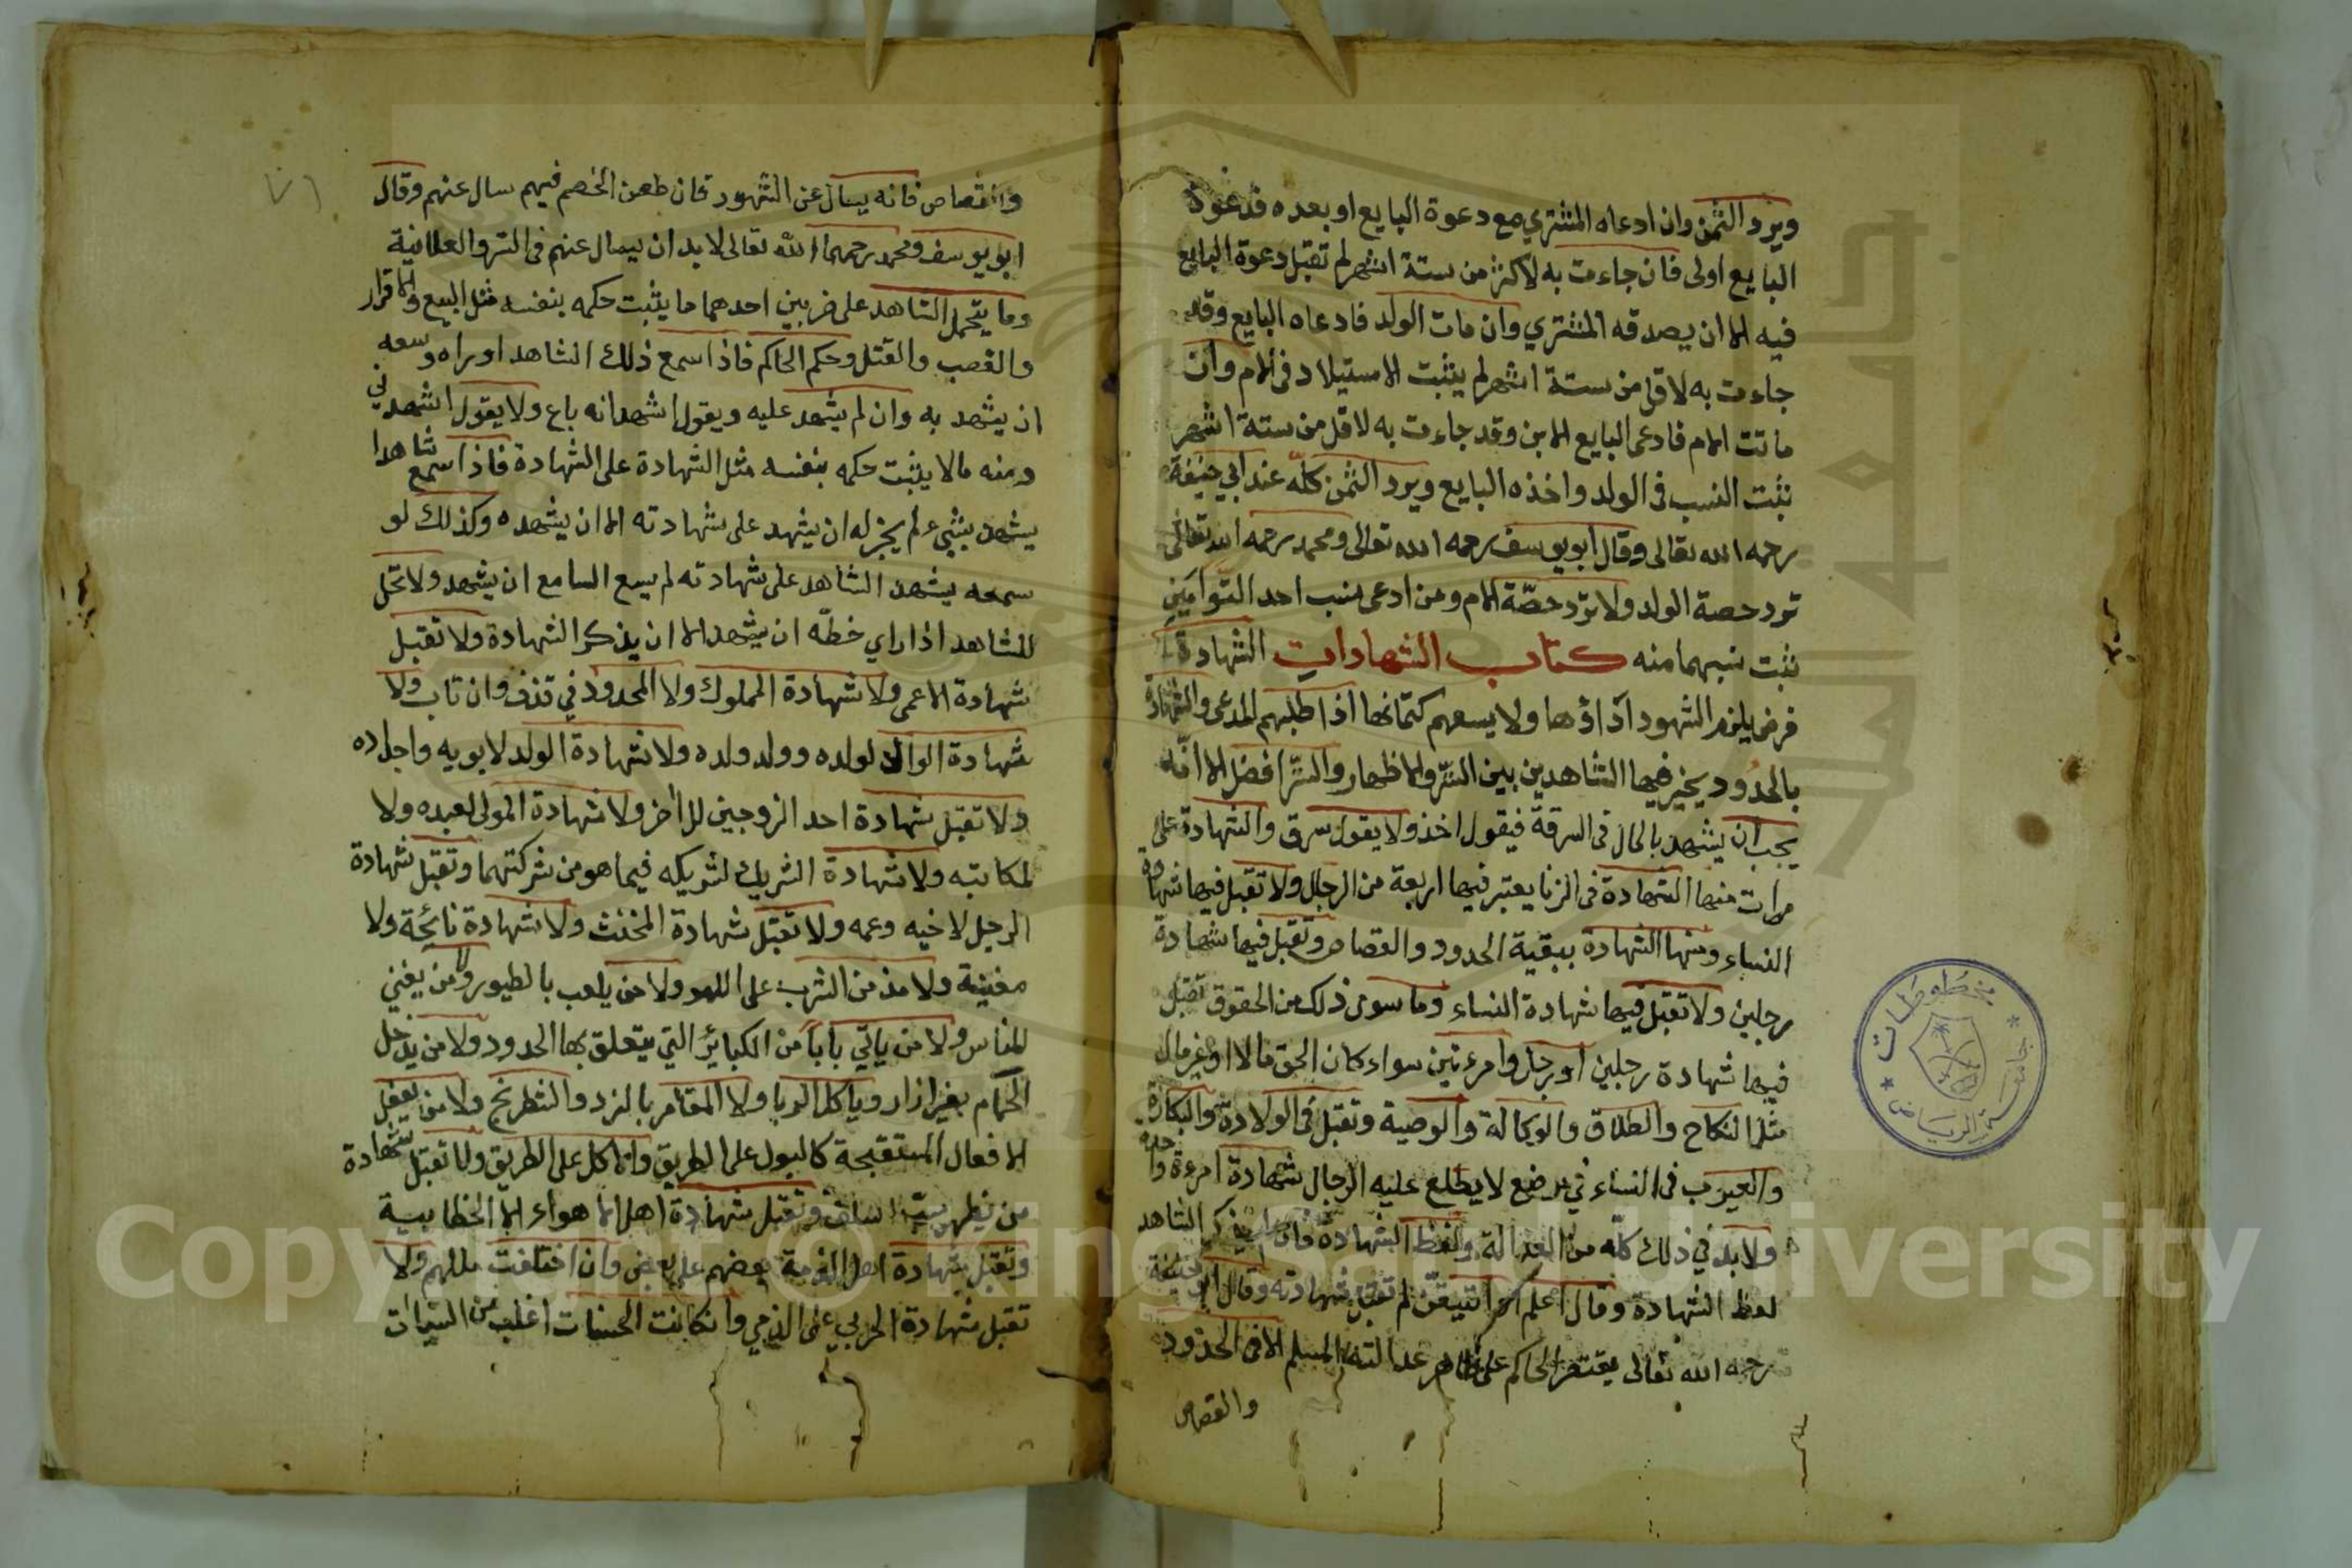 ويرد الثمن وان ادعاه المشتري مع دعوة البايع او بعده فدعوة
البايع اولى فان جاءت به لاكثر من ستة اشهر لم تقبل دعوة البايع
فيه الا ان يصدقه المشتري وان مات الولد فادعاه البايع وقد
جاءت به لاقل من ستة اشهر لم يثبت الاستيلاد في الام وان
ماتت الام فادعى البايع الابن وقد جاءت به لاقل من ستة اشهر
ثبت النسب في الولد واخذه البايع ويرد الثمن كلّه عند ابي حنيفة
رحمه الله تعالى وقال ابو يوسف رحمه الله تعالى ومحمد رحمه الله تعالى
ترد حصة الولد ولا تردّ حصّة الام ومن ادعى نسب احد التّوأمين
ثبت نسبهما منه كتاب الشهادات الشهادة
فرض يلزم الشهود آداؤها ولا يسعهم كتمانها اذا طلبهم المدعى والشهادة
بالحدود يخير فيها الشاهدين بين السّتر والاظهار والسّتر افضل الا انّه
يجب ان يشهد بالمال في السرقة فيقول اخذ ولا يقول سرق والشهادة على
مراتب منها الشهادة في الزنا يعتبر فيها اربعة من الرجال ولا تقبل فيها شهادة
النساء ومنها الشهادة ببقية الحدود والقصاص وتقبل فيها شهادة
رجلين ولا تقبل فيها شهادة النساء وما سوى ذلك من الحقوق تقبل
فيها شهادة رجلين او رجل وامرءتين سواء كان الحق مالا او غير مال
مثل النكاح والطلاق والوكالة والوصية وتقبل في الولادة والبكارة
والعيوب في النساء في موضع لا يطلع عليه الرجال شهادة امرءة واحدة
ولا بد في ذلك كلّه من العدالة ولفظ الشهادة فان لم يذكر الشاهد
لفظ الشهادة وقال اعلم او اتيقّن لم تقبل شهادته وقال ابو حنيفة
رحمه الله تعالى يقتصر الحاكم على ظاهر عدالته المسلم الا في الحدود
والقصاص
والقصاص فانه يسال عن الشهود فان طعن الخصم فيهم سال عنهم وقال
ابو يوسف ومحمد رحمهما الله تعالى لا بد ان يسال عنهم في السر والعلانية
وما يتحمل الشاهد على ضربين احدهما ما يثبت حكمه بنفسه مثل البيع والاقرار
والغصب والقتل وحكم الحاكم فاذا سمع ذلك الشاهد او راه وسعه
ان يشهد به وان لم يشهد عليه ويقول اشهد انه باع ولا يقول اشهدني
ومنه مالا يثبت حكمه بنفسه مثل الشهادة على الشهادة فاذا سمع شاهدا
يشهد بشيء لم يجز له ان يشهد على شهادته الا ان يشهده وكذلك لو
سمعه يشهد الشاهد على شهادته لم يسع السامع ان يشهد ولا تحل
للشاهد اذا راي خطّه ان يشهد الا ان يذكر الشهادة ولا تقبل
شهادة الاعمى ولا شهادة المملوك ولا المحدود في قذف وان تاب ولا
شهادة الوالد لولده وولد ولده ولا شهادة الولد لابويه واجداده
ولا تقبل شهادة احد الزوجين للاخر ولا شهادة المولى لعبده ولا
لمكاتبه ولا شهادة الشريك لشريكه فيما هو من شركتهما وتقبل شهادة
الرجل لاخيه وعمه ولا تقبل شهادة المخنث ولا شهادة نايحة ولا
مغنية ولا مدمن الشرب على اللهو ولا من يلعب بالطيور ولا من يغني
للناس ولا من ياتي بابا من الكبائر التي يتعلق بها الحدود ولا من يدخل
الحمام بغير ازار وياكل الربا ولا المقامر بالنرد والشطرنج ولا من يفعل
الافعال المستقبحة كالبول على الطريق والاكل على الطريق ولا تقبل شهادة
من يظهر سبّ السلف وتقبل شهادة اهل الاهواء الا الخطابية
وتقبل شهادة اهل الذمة بعضهم على بعض وان اختلفت مللهم ولا
تقبل شهادة الحربي على الذمي وان كانت الحسنات اغلب من السيات
مخطوطات
جامعة الرياض
Copyright © King Saud University